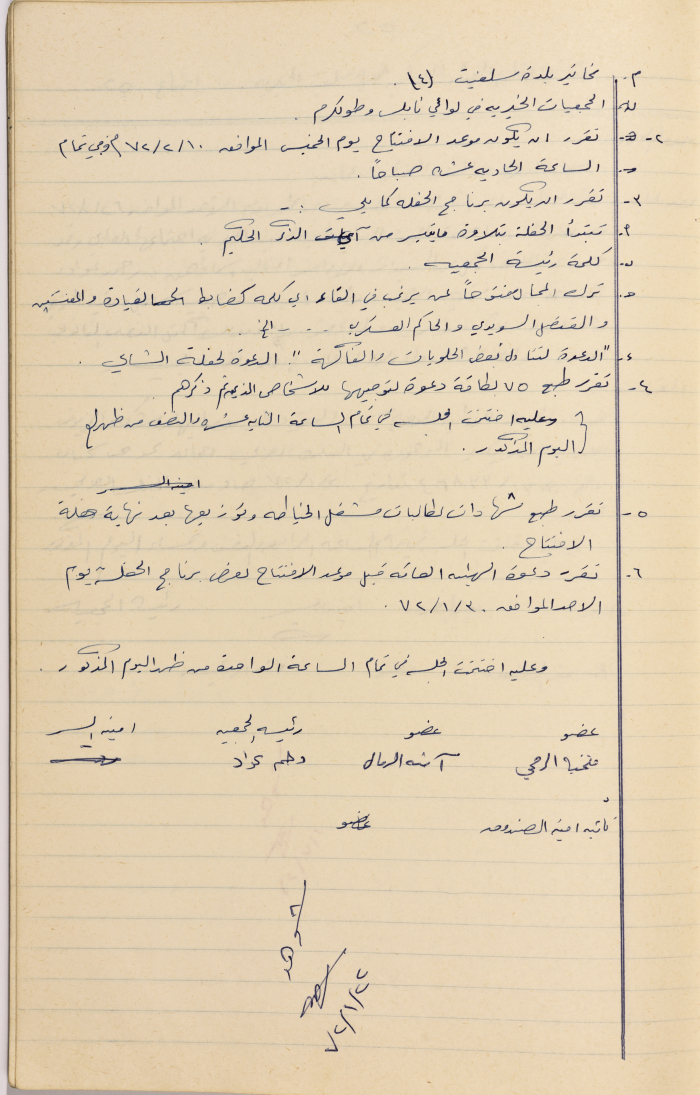 م. مخاتير بلدة سلفيت (٤).
ن. الجمعيات الخيرية في لوائي نابلس وطولكرم.
٢- تقرر ان يكون موعد الافتتاح يوم الخميس الموافق ٧٢/٢/١٠م وفي تمام
الساعة الحاديه عشره صباحاً.
٣- تقرر ان يكون برنامج الحفله كما يلي :-
أ. تبتدأ الحفلة بتلاوة ما تيسر من آي الذكر الحكيم.
ب. كلمة رئيسة الجمعيه.
ج. ترك المجال مفتوحاً لمن يرغب في القاء اي كلمه كضابط القيادة والمفتشين
والقنصل السويدي والحاكم العسكري - - - الخ.
د. "الدعوة لتناول بعض الحلويات والفاكهة". الدعوة لحفلة الشاي.
٤- تقرر طبع ٧٥ بطاقة دعوة لتوجيهها للاشخاص الذين تم ذكرهم.
وعليه اختتمت الجلسه في تمام الساعة الثانيه عشره والنصف من ظهر
اليوم المذكور.
امينة السر
٥- تقرر طبع شهادات لطالبات مشغل الخياطه وتوزيعها بعد نهاية حفلة
الافتتاح.
٦- تقرر دعوة الهيئه العامه قبل موعد الافتتاح لعرض برنامج الحفلة يوم
الاحد الموافق ٧٢/١/٣٠.
وعليه اختتمت الجلسه في تمام الساعة الواحدة من ظهر اليوم المذكور.
عضو عضو رئيسة الجمعيه امينة السر
فتحية
نائبه امينة الصندوق عضو
٧٢/١/٢٢